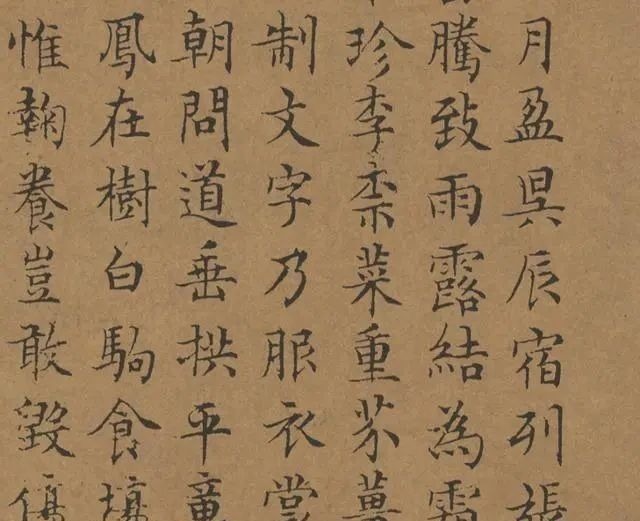 月盈昃辰宿列張
騰致雨露結為霜
珍李柰菜重芥薑
制文字乃服衣裳
朝問道垂拱平章
鳳在樹白駒食場
惟鞠養豈敢毀傷